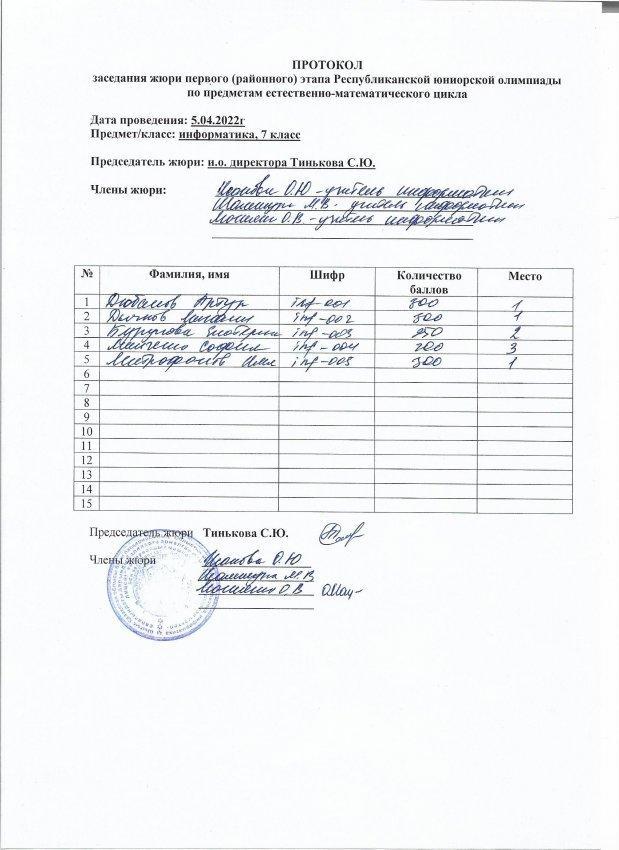 ПРОТОКОЛ
заседания жюри первого (районного) этапа Республиканской юниорской олимпиады
по предметам естественно-математического цикла
Дата проведения: 5.04.2022г
Предмет/класс: информатика, 7 класс
Председатель жюри: и.о. директора Тинькова С.Ю.
Члены жюри: О.Ю - учитель информатики
М.В. - учитель информатики
О.В. - учитель информатики
№ Фамилия, имя Шифр Количество баллов Место
1 Артур inf-001 300 1
2 inf-002 300 1
3 inf-003 250 2
4 inf-004 200 3
5 Митрофанов inf-005 300 1
6
7
8
9
10
11
12
13
14
15
Председатель жюри Тинькова С.Ю.
Члены жюри О.Ю
М.В
О.В